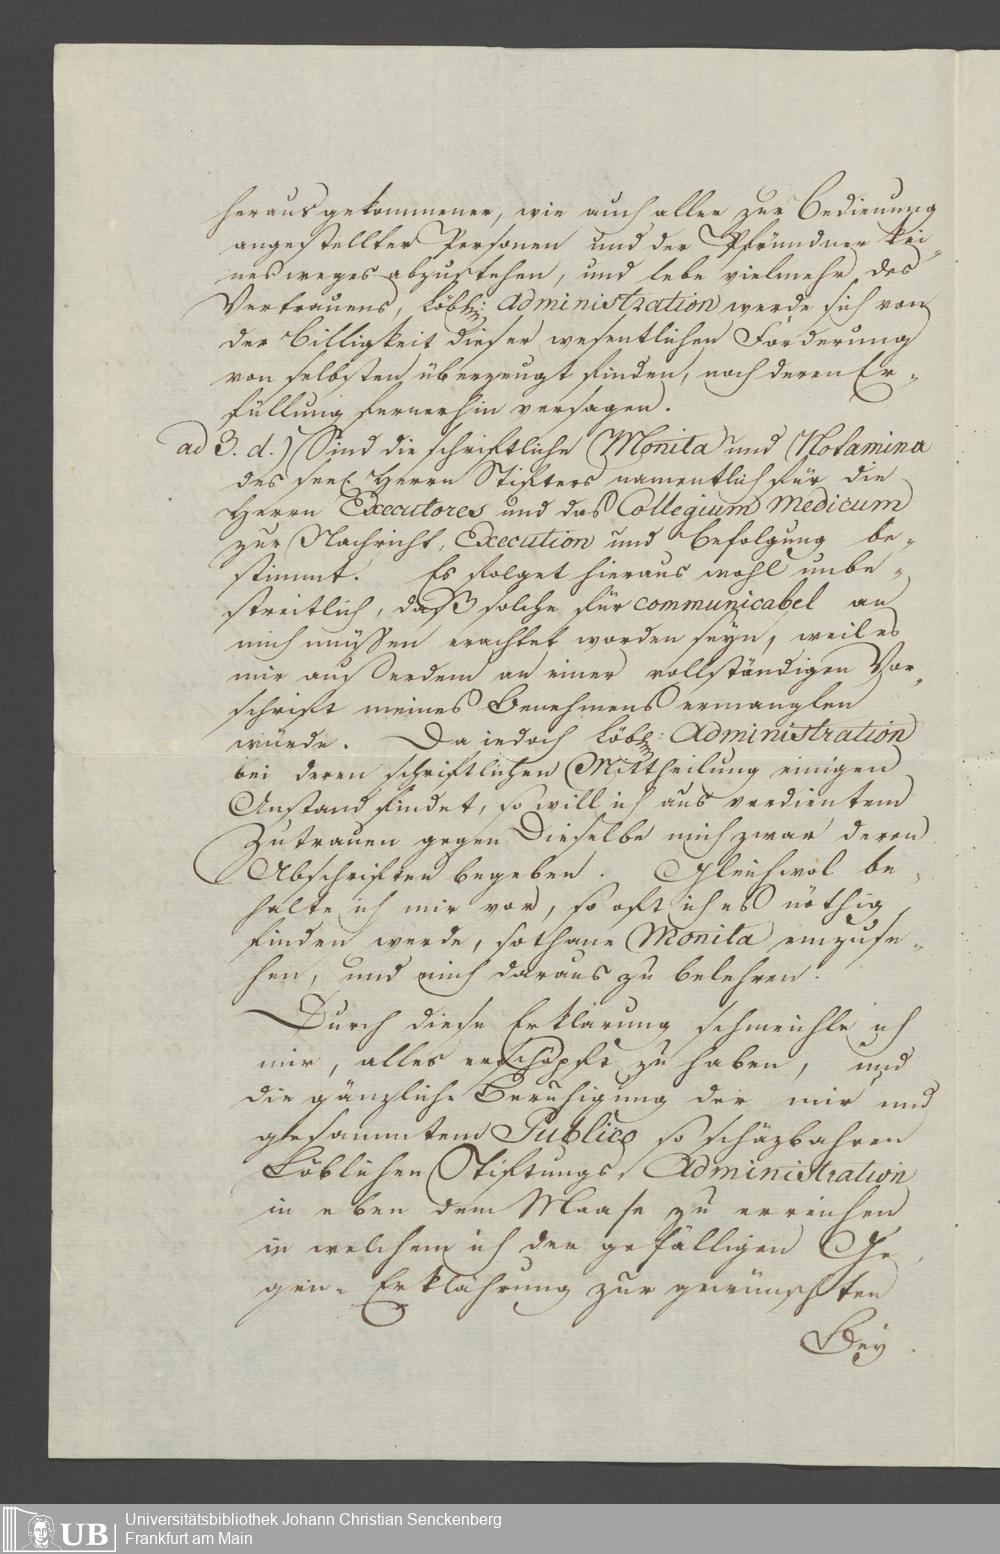 herausgekommener, wie auch aller zur Bedienung
angestellter Personen und der Pfründner kei-
nesweges abzustehen, und lebe vielmehr des
Vertrauens, Löbl: Administration werde sich von
der Billigkeit dieser wesentlichen Forderung
von selbsten überzeugt finden, noch deren Er-
füllung fernerhin versagen.
ad 3. d.) Sind die schriftliche Monita und Notamina
des seel. Herrn Stifters namentlich für die
Herrn Executores und das Collegium Medicum
zur Nachricht, Execution und Befolgung be-
stimmt. Es folget hieraus wohl unbe-
streitlich, daß solche für communicabel an
mich müssen erachtet worden seyn, weil es
mir ausserdem an einer vollständigen Vor-
schrift meines Benehmens ermanglen
würde. Da jedoch Löbl: Administration
bei deren schriftlichen Mittheilung einigen
Anstand findet, so will ich aus verdientem
Zutrauen gegen Dieselbe mich zwar deren
Abschriften begeben. Gleichwol be-
halte ich mir vor, so oft ich es nöthig
finden werde, sothane Monita einzuse-
hen, und mich daraus zu belehren.
Durch diese Erklärung schmeichle ich
mir, alles erschöpft zu haben, und
die gänzliche Beruhigung der mir und
gesammtem Publico so schäzbahren
Löblichen Stiftungs-Administration
in eben dem Maase zu erreichen,
in welchem ich der gefälligen Ge-
gen-Erklährung zur gewünschten
Bey-
UB
Universitätsbibliothek Johann Christian Senckenberg
Frankfurt am Main